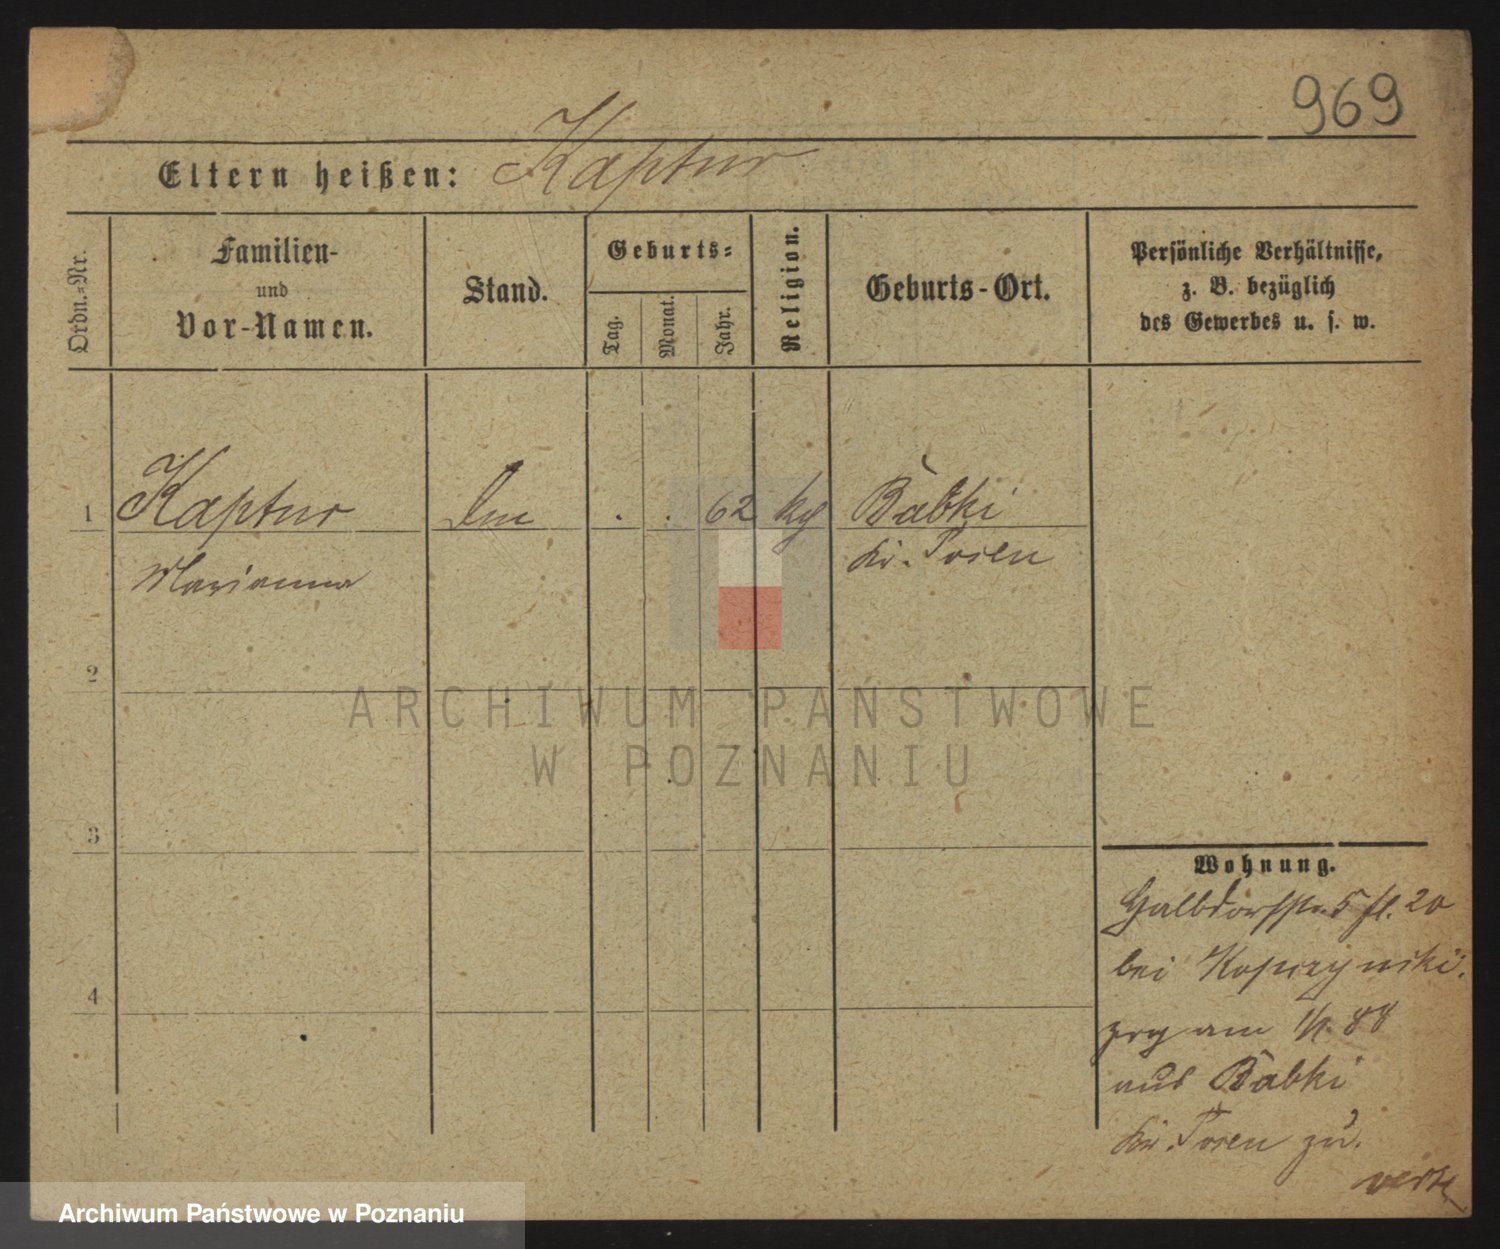 969
Eltern heißen: Kaptur
Ordn.-Nr.
Familien-
und
Vor-Namen.
Stand.
Geburts-
Tag.
Monat.
Jahr.
Religion.
Geburts-Ort.
Persönliche Verhältnisse,
z. B. bezüglich
des Gewerbes u. s. w.
1 Kaptur . . 62 Babki
Marianna Kr. Posen
2
3
4
Wohnung.
Halbdorfstr. 5 20
bei
am 1/1. 88
aus Babki
Kr. Posen zu.
verte
ARCHIWUM PAŃSTWOWE
W POZNANIU
Archiwum Państwowe w Poznaniu